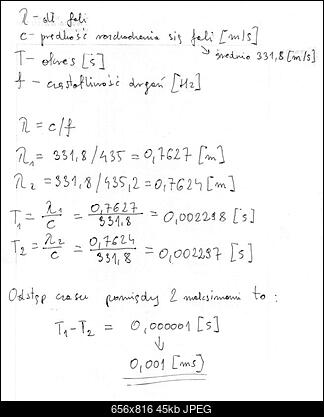 λ - dł. fali
c - prędkość rozchodzenia się fali [m/s]
↳ średnio 331,8 [m/s]
T - okres [s]
f - częstotliwość drgań [Hz]
λ = c/f
λ₁ = 331,8/435 = 0,7627 [m]
λ₂ = 331,8/435,2 = 0,7624 [m]
T₁ = λ₁/c = 0,7627/331,8 = 0,002298 [s]
T₂ = λ₂/c = 0,7624/331,8 = 0,002297 [s]
Odstęp czasu pomiędzy 2 maksimami to:
T₁ - T₂ = 0,000001 [s]
↓
0,001 [ms]
656x816 45kb JPEG